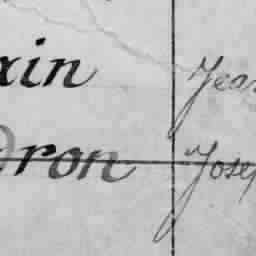 xin Jean
Dron Josep